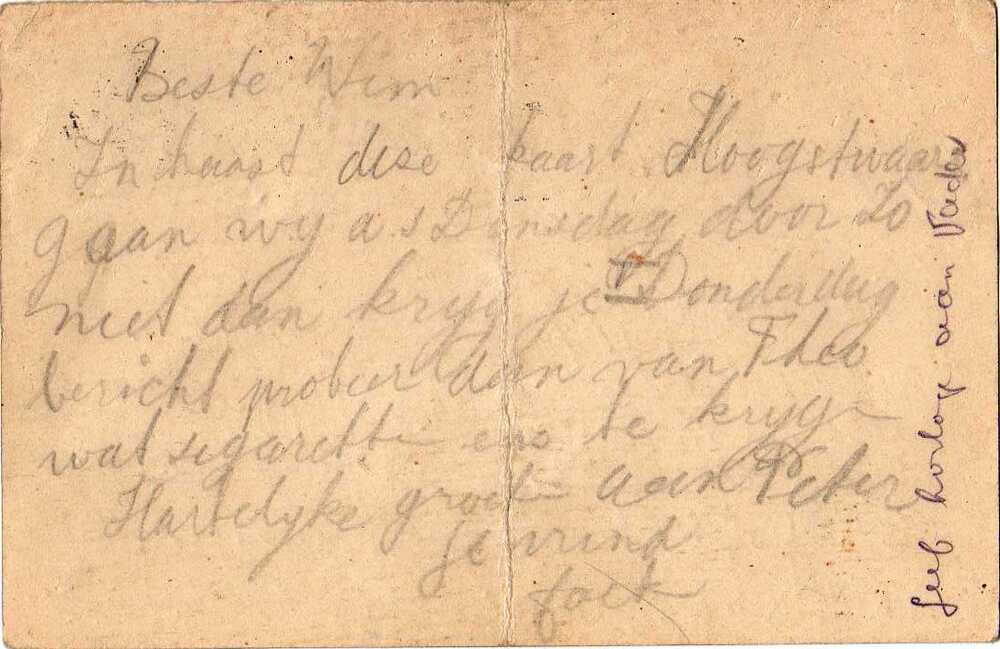 Beste Wim
In haast deze kaart. Hoogstwaars
gaan wy a.s Dinsdag door Zo
niet dan kryg je Donderdag
bericht probeer dan van Theo
wat sigarette enz te kryge
Hartelyke groete aan Peter
je vriend
Geef horloge aan Vader